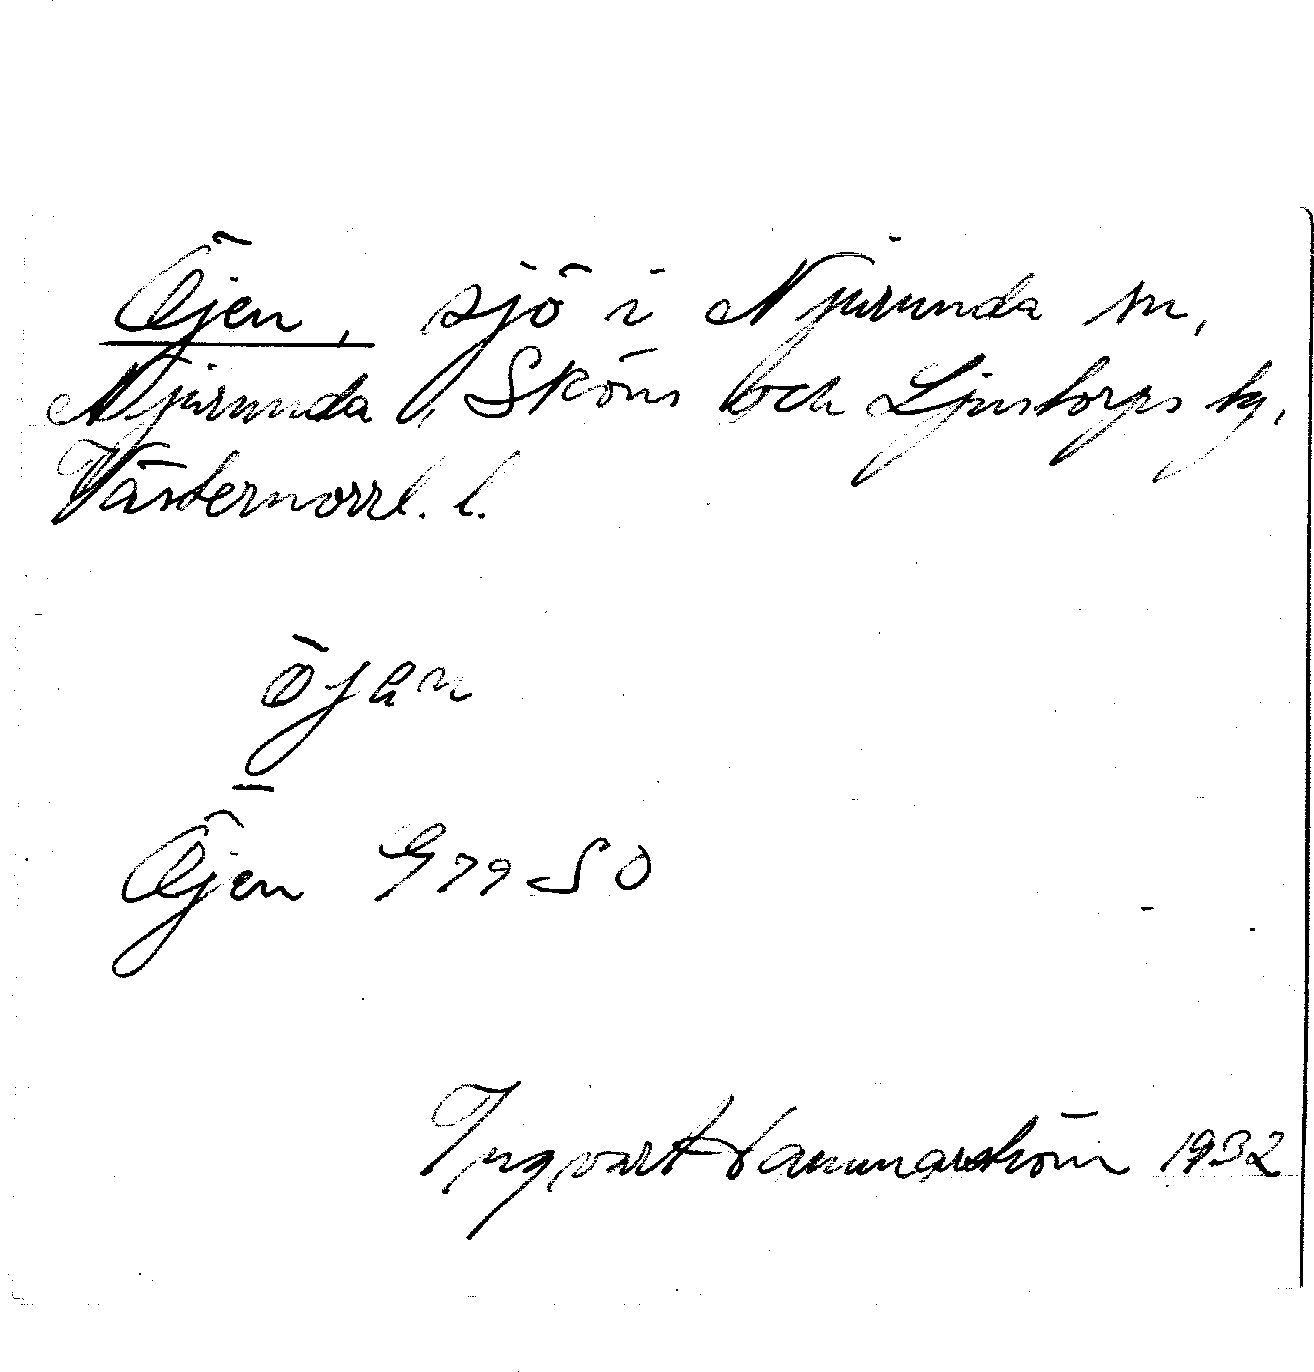 Öjen, sjö i Njurunda sn,
Njurunda, Sköns och Ljustorps tg,
Västernorrl. l.
öjan
Öjen G 79 SO
Ingvart Hammarström 1932